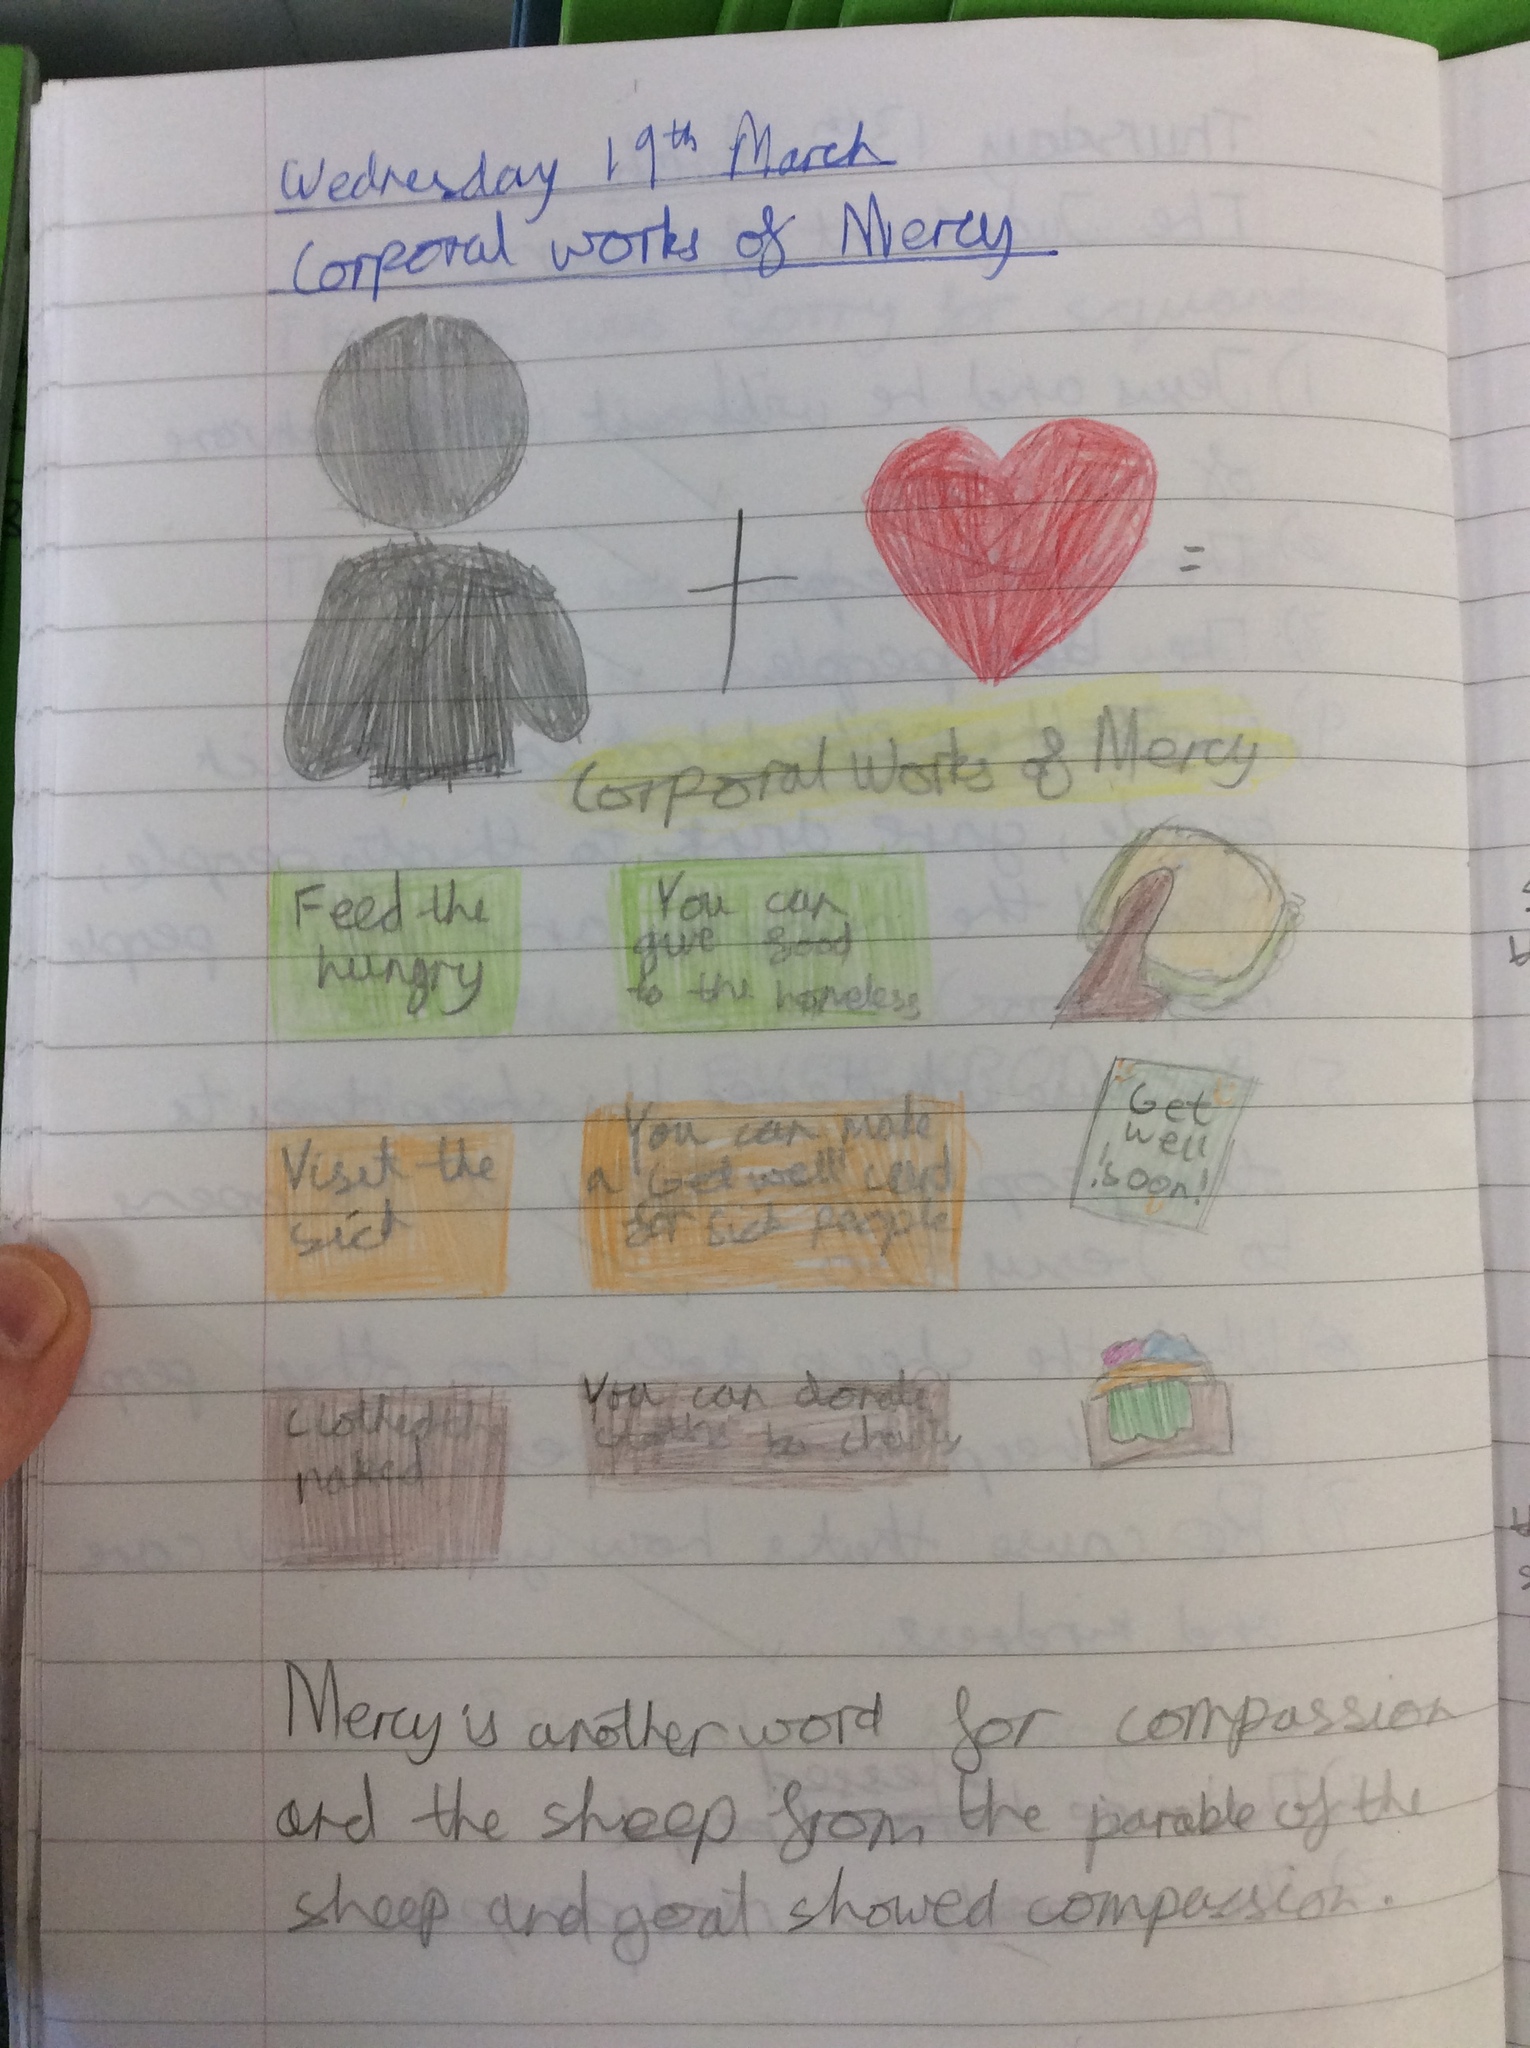 Wednesday 19th March
Corporal works of Mercy
+
=
Corporal Works of Mercy
Feed the
hungry
You can
give food
to the homeless
Visit the
sick
You can make
a Get well card
for sick people
Get
well
soon!
Clothed the
naked
You can donate
to charity
Mercy is another word for compassion
and the sheep from the parable of the
sheep and goat showed compassion.